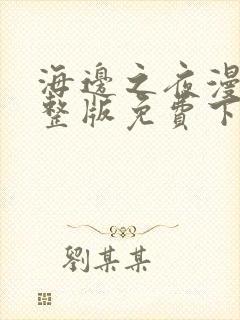 海邊之夜漫
整版免費下
劉某某